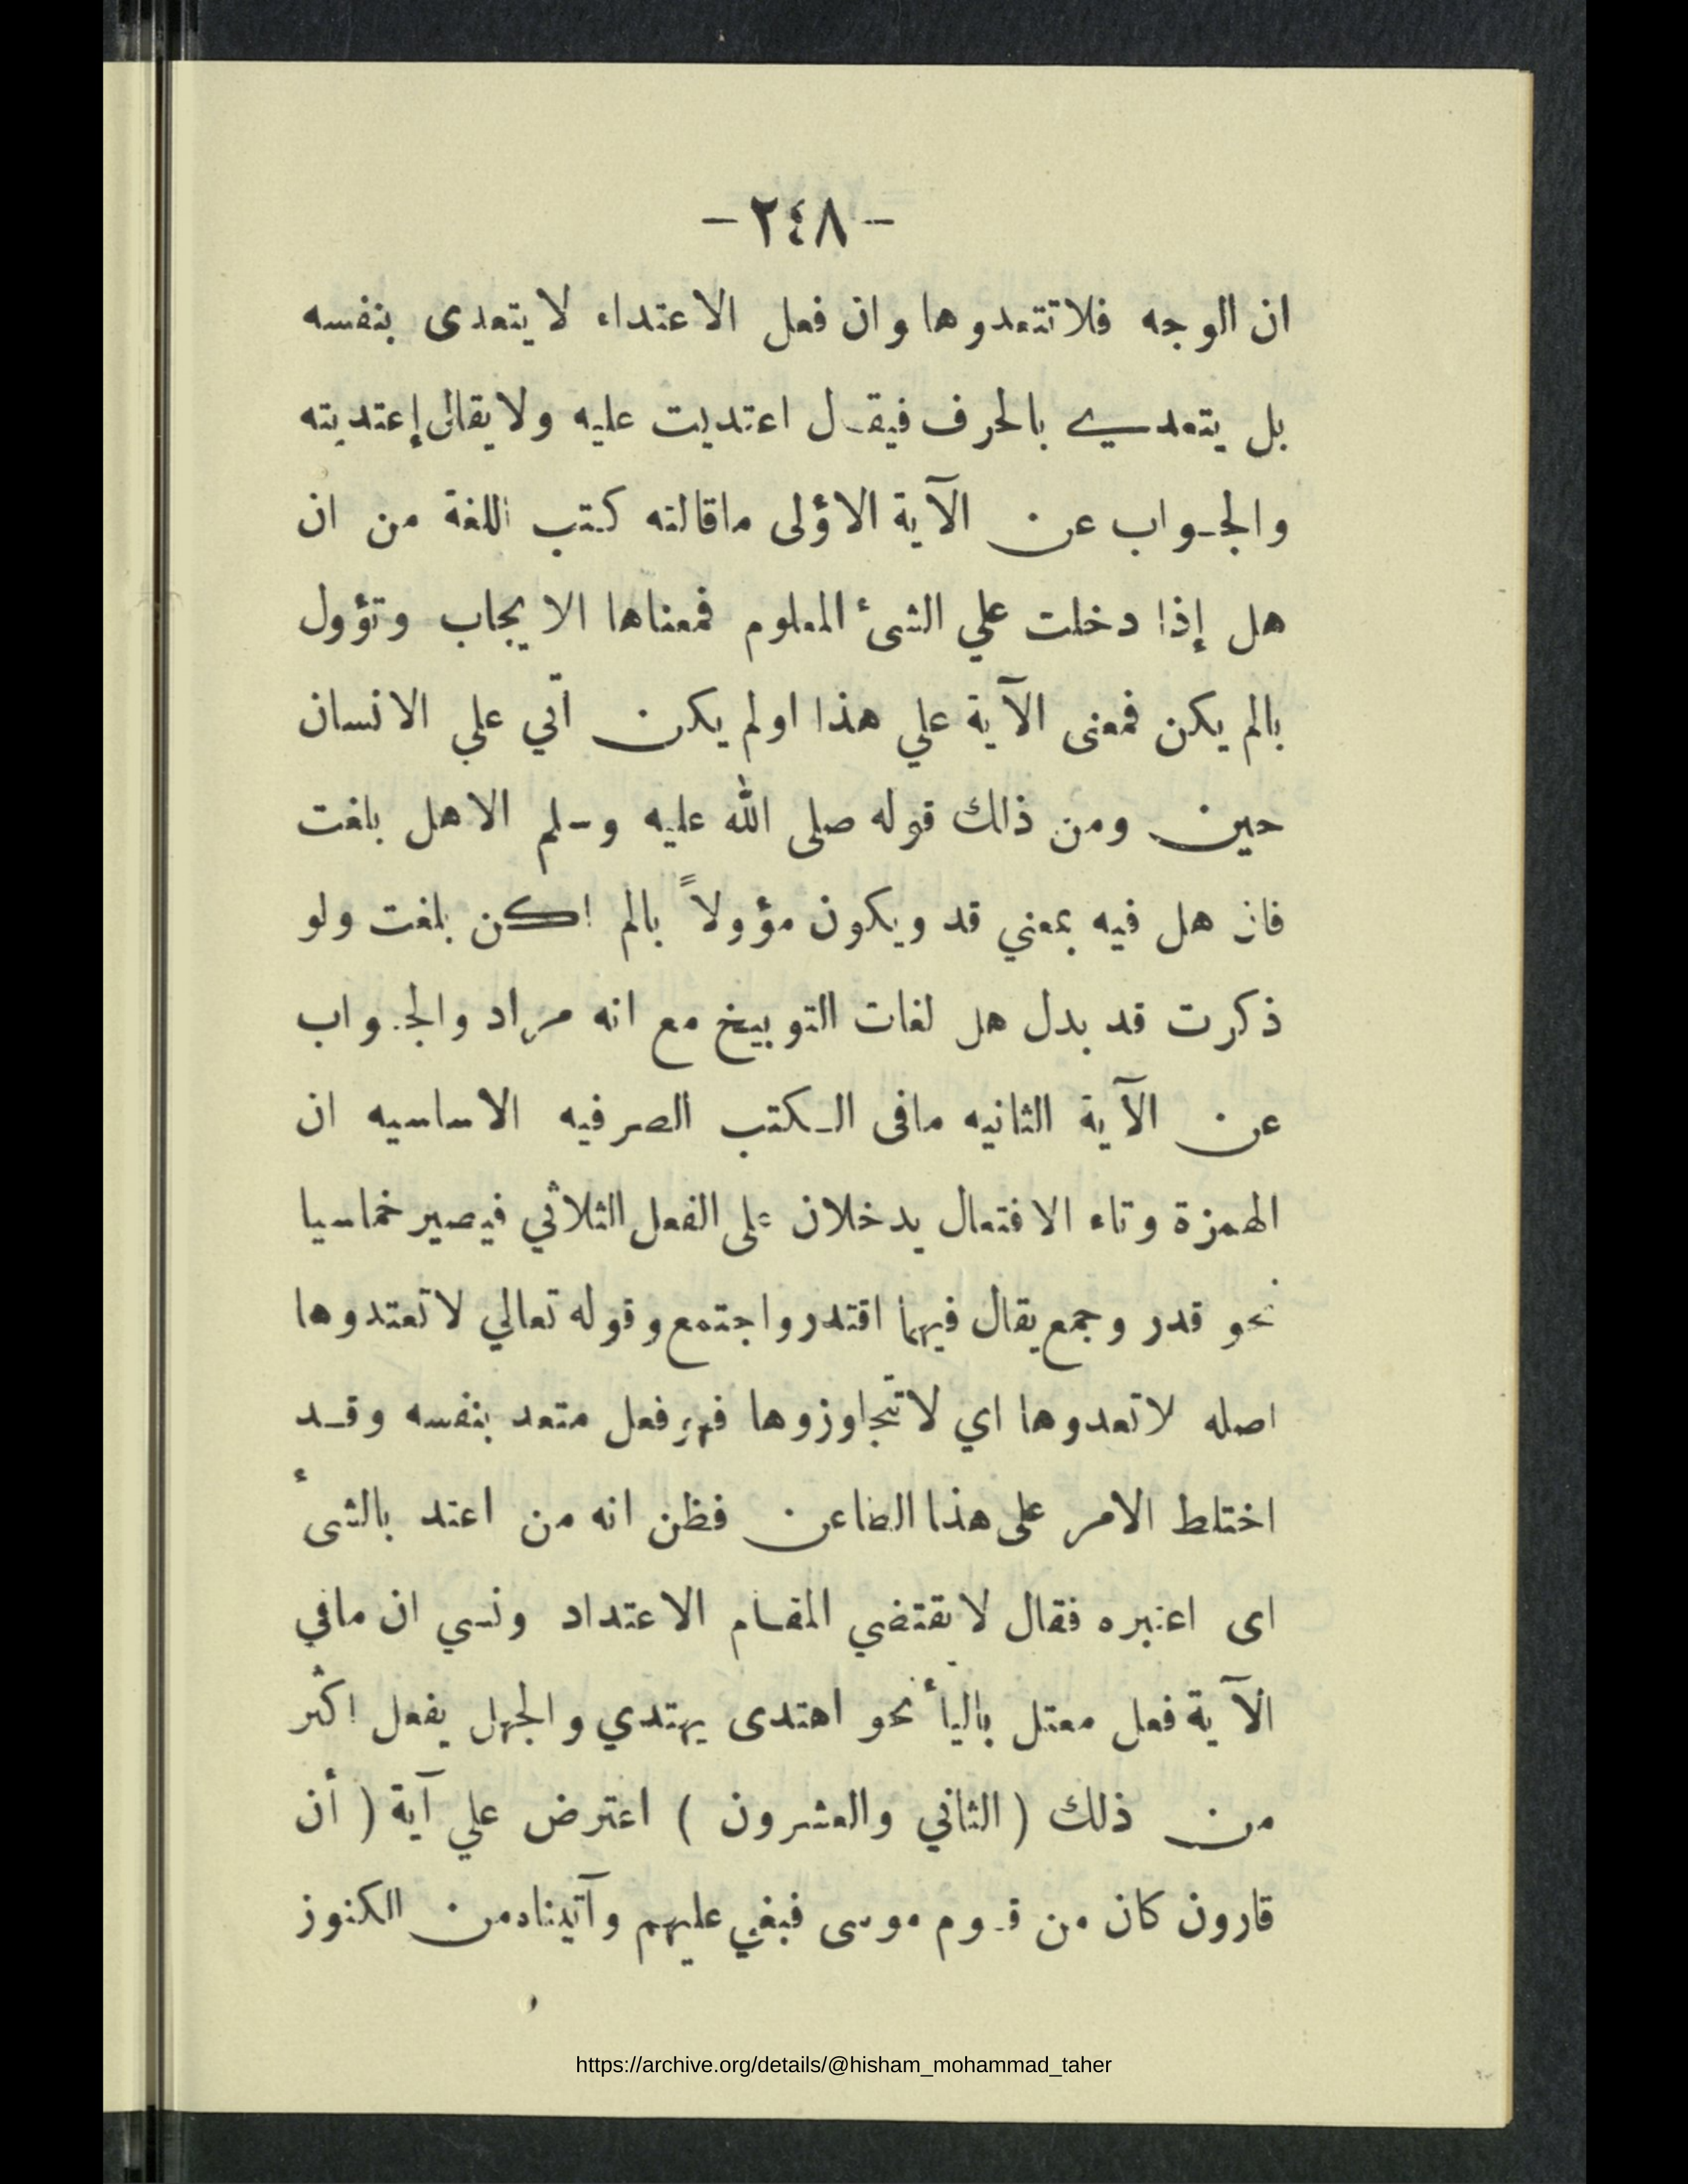 - ٢٤٨ -
ان الوجه فلا تتعدوها وان فعل الاعتداء لا يتعدى بنفسه
بل يتعدي بالحرف فيقـل اعتديت عليه ولا يقالى إعتديته
والجـواب عن الآية الاؤلى ماقالته كتب اللغة من ان
هل إذا دخلت علي الشئ المعلوم فمعناها الايجاب وتؤول
بالم يكن فمعنى الآية علي هذا اولم يكن اتي علي الانسان
حين ومن ذالك قوله صلى الله عليه وسلم الاهل بلغت
فان هل فيه بمعني قد ويكون مؤولاً بالم اكن بلغت ولو
ذكرت قد بدل هل لفات التوبيخ مع انه مراد والجـواب
عن الآية الثانيه مافى الـكتب الصرفيه الاساسيه ان
الهمزة وتاء الافتعال يدخلان على الفعل الثلاثي فيصير خماسيا
نحو قدر وجمع يقال فيهما اقتدر واجتمع وقوله تعالي لاتعتدوها
اصله لاتعدوها اي لاتتجاوزوها فهو فعل متعد بنفسه وقـد
اختلط الامر على هذا الطاعن فظن انه من اعتد بالشئ
اى اعتبره فقال لا يقتضي المقـام الاعتداد ونسي ان مافي
الآية فعل معتل باليأ نحو اهتدى يهتدي والجهل يفعل اكثر
من ذلك ( الثاني والعشرون ) اعترض علي آية ( أن
قارون كان من قـوم موسى فبغي عليهم وآتيناه من الكنوز
https://archive.org/details/@hisham_mohammad_taher